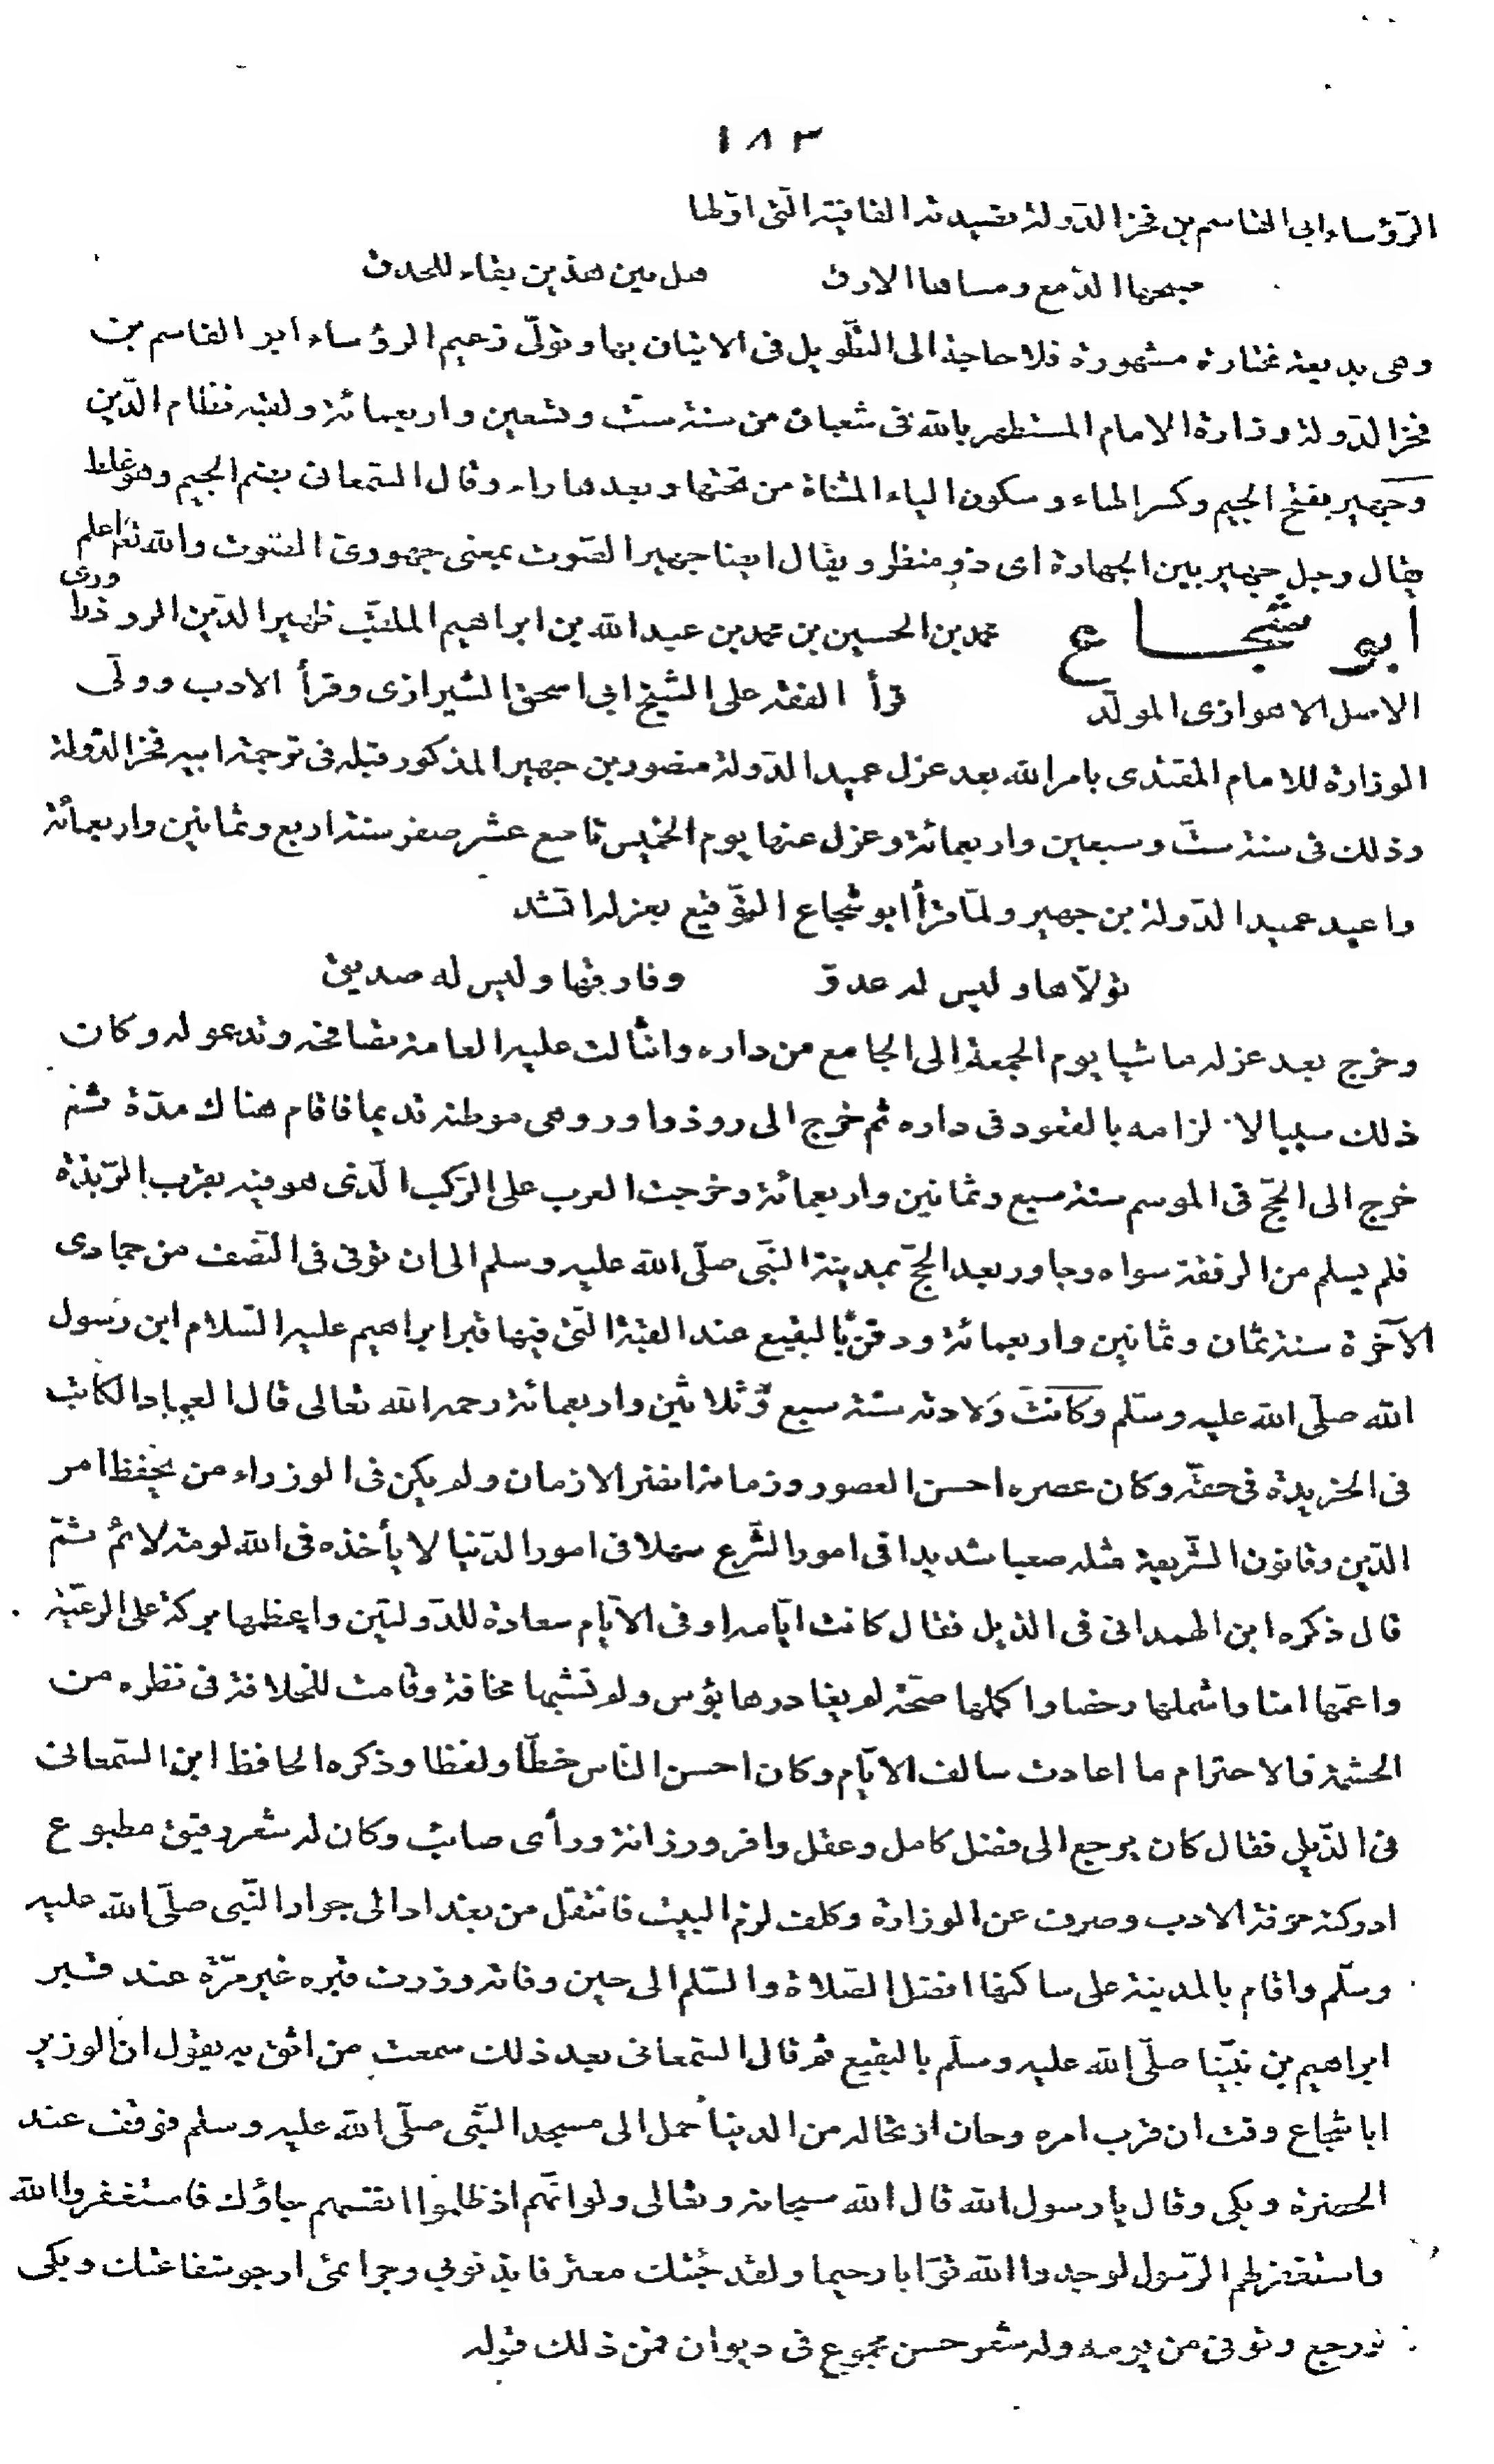 ١٨٣
الرؤساء ابى القاسم بن فخر الدولة بقصيدته القافية التى اولها
صبحها الدمع ومساها الارق هل بين هذين بقاء للحدق
وهى بديعة مختارة مشهورة فلا حاجة الى التطويل فى الاتيان بها وتولى زعيم الرؤساء ابو القاسم بن
فخر الدولة وزارة الامام المستظهر بالله فى شعبان من سنة ست وتسعين واربعمائة ولقبه نظام الدين
وجهير بفتح الجيم وكسر الهاء وسكون الياء المثناة من تحتها وبعدها راء وقال السمعانى بضم الجيم وهو غلط
يقال رجل جهير بين الجهارة اى ذو منظر ويقال ايضا جهير الصوت بمعنى جهورى الصوت والله تعالى اعلم
ابو شجاع محمد بن الحسين بن محمد بن عبد الله بن ابراهيم الملقب ظهير الدين الروذراورى
الاصل الاهوازى المولد قرأ الفقه على الشيخ ابى اسحق الشيرازى وقرأ الادب وولى
الوزارة للامام المقتدى بامر الله بعد عزل عميد الدولة منصور بن جهير المذكور قبله فى ترجمة ابيه فخر الدولة
وذلك فى سنة ست وسبعين واربعمائة وعزل عنها يوم الخميس تاسع عشر صفر سنة اربع وثمانين واربعمائة
واعيد عميد الدولة بن جهير ولما قرأ ابو شجاع التوقيع بعزله انشد
تولاها وليس له عدو وفارقها وليس له صديق
وخرج بعد عزله ماشيا يوم الجمعة الى الجامع من داره وانثالت عليه العامة تصافحه وتدعو له وكان
ذلك سببا لالزامه بالقعود فى داره ثم خرج الى روذراور وهى موطنه قديما فاقام هناك مدة ثم
خرج الى الحج فى الموسم سنة سبع وثمانين واربعمائة وخرجت العرب على الركب الذى هو فيه بقرب الربذة
فلم يسلم من الرفقة سواه وجاور بعد الحج بمدينة النبى صلى الله عليه وسلم الى ان توفى فى النصف من جمادى
الآخرة سنة ثمان وثمانين واربعمائة ودفن بالبقيع عند القبة التى فيها قبر ابراهيم عليه السلام ابن رسول
الله صلى الله عليه وسلم وكانت ولادته سنة سبع وثلاثين واربعمائة رحمه الله تعالى قال العماد الكاتب
فى الخريدة فى حقه وكان عصره احسن العصور وزمانه انضر الازمان ولم يكن فى الوزراء من يحفظ امر
الدين وقانون الشريعة مثله صعبا شديدا فى امور الشرع سهلا فى امور الدنيا لا يأخذه فى الله لومة لائم ثم
قال ذكره ابن الهمدانى فى الذيل فقال كانت ايامه اوفى الايام سعادة للدولتين واعظمها بركة على الرعية
واعمها امنا واشملها رخصا واكملها صحة لم يغادرها بؤس ولم تشبها مخافة وقامت للخلافة فى نظره من
الحشمة والاحترام ما اعادت سالف الايام وكان احسن الناس خطا ولفظا وذكره الحافظ ابن السمعانى
فى الذيل فقال كان يرجع الى فضل كامل وعقل وافر ورزانة ورأى صائب وكان له شعر رقيق مطبوع
ادركته حرفة الادب وصرف عن الوزارة وكلف لزم البيت فانتقل من بغداد الى جوار النبى صلى الله عليه
وسلم واقام بالمدينة على ساكنها افضل الصلاة والسلم الى حين وفاته وزرت قبره غير مرة عند قبر
ابراهيم بن نبينا صلى الله عليه وسلم بالبقيع ثم قال السمعانى بعد ذلك سمعت من اثق به يقول ان الوزير
ابا شجاع وقت ان قرب امره وحان ارتحاله من الدنيا حمل الى مسجد النبى صلى الله عليه وسلم فوقف عند
الحضرة وبكى وقال يا رسول الله قال الله سبحانه وتعالى ولو انهم اذ ظلموا انفسهم جاؤك فاستغفروا الله
واستغفر لهم الرسول لوجدوا الله توابا رحيما ولقد جئتك معترفا بذنوبي وجرائمى ارجو شفاعتك وبكى
ورجع وتوفى من يومه وله شعر حسن مجموع فى ديوان فمن ذلك قوله